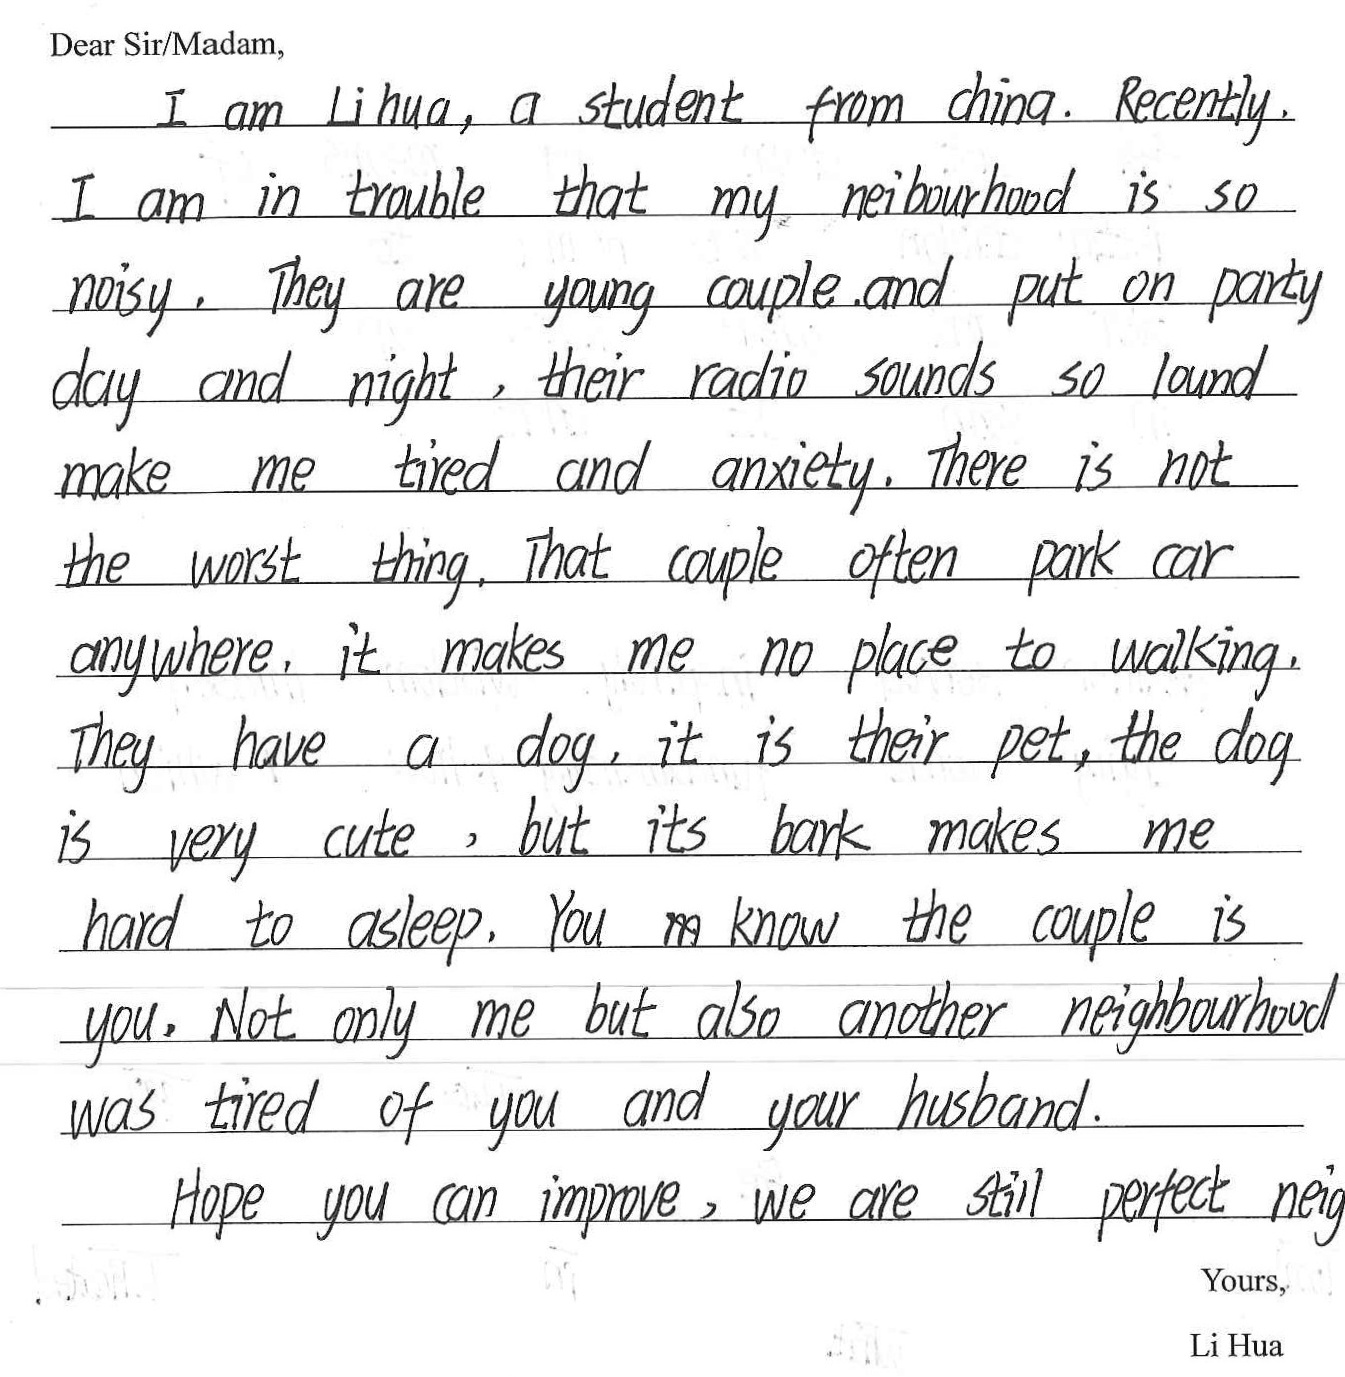 Dear Sir/Madam,
I am Li hua, a student from china. Recently.
I am in trouble that my neibourhood is so
noisy. They are young couple.and put on party
day and night, their radio sounds so lound
make me tired and anxiety. There is not
the worst thing. That couple often park car
anywhere. it makes me no place to walking.
They have a dog, it is their pet, the dog
is very cute, but its bark makes me
hard to asleep. You know the couple is
you. Not only me but also another neighbourhood
was tired of you and your husband.
Hope you can improve, we are still perfect neig
Yours,
Li Hua